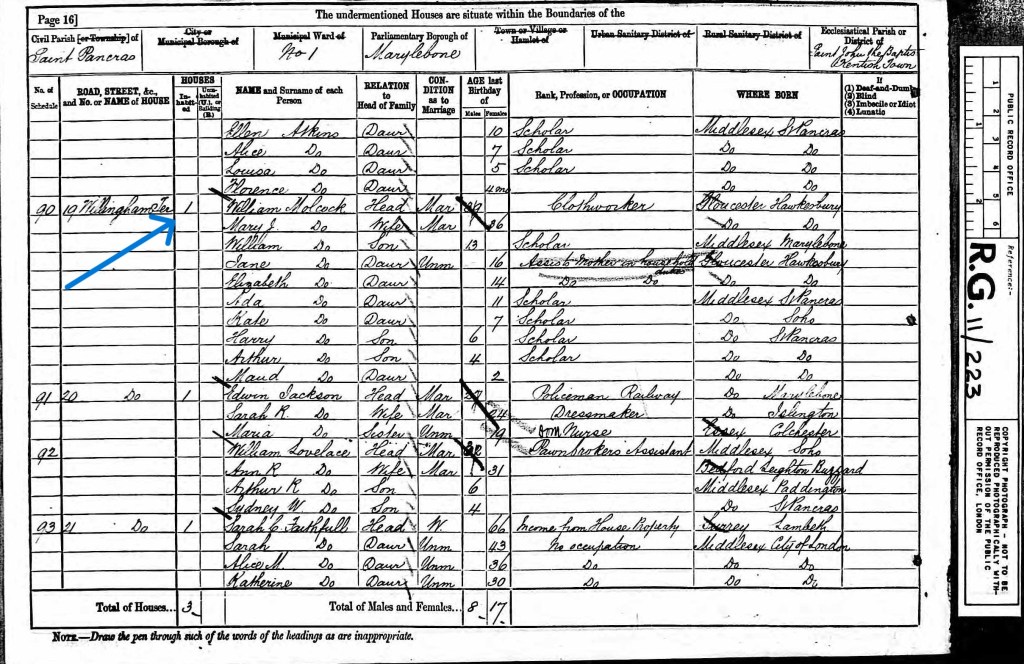 The undermentioned Houses are situate within the Boundaries of the
Page 16]
Civil Parish [or Township] of
Saint Pancras
City or Municipal Borough of
Municipal Ward of
No 1
Parliamentary Borough of
Marylebone
Town or Village or Hamlet of
Urban Sanitary District of
Rural Sanitary District of
Ecclesiastical Parish or District of
Saint John the Baptis
Kentish Town
No. of Schedule
ROAD, STREET, &c., and No. or NAME of HOUSE
HOUSES
In-habit-ed
Unin-habited (U.), or Building (B.)
NAME and Surname of each Person
RELATION to Head of Family
CON-DITION as to Marriage
AGE last Birthday of
Males
Females
Rank, Profession, or OCCUPATION
WHERE BORN
If
(1) Deaf-and-Dumb
(2) Blind
(3) Imbecile or Idiot
(4) Lunatic
Ellen Atkins Daur 10 Scholar Middlesex St Pancras
Alice Do Daur 7 Scholar Do Do
Louisa Do Daur 5 Scholar Do Do
Florence Do Daur 4 mo Do Do
90 19 Willingham Ter 1 William Molcock Head Mar 39 Clothworker Gloucester Hawkesbury
Mary J. Do Wife Mar 36 Do Do
William Do Son 13 Scholar Middlesex Marylebone
Jane Do Daur Unm 16 Assists Mother in household duties Gloucester Hawkesbury
Elizabeth Do Daur 14 Do Do Do Do
Ada Do Daur 11 Scholar Middlesex St Pancras
Kate Do Daur 7 Scholar Do Soho
Harry Do Son 6 Scholar Do St Pancras
Arthur Do Son 4 Scholar Do Do
Maud Do Daur 2 Do Do
91 20 Do 1 Edwin Jackson Head Mar 27 Policeman Railway Do Marylebone
Sarah R. Do Wife Mar 24 Dressmaker Do Islington
Maria Do Sister Unm 19 Nurse Essex Colchester
92 William Lovelace Head Mar 32 Pawnbrokers Assistant Middlesex Soho
Ann R Do Wife Mar 31 Bedford Leighton Buzzard
Arthur R Do Son 6 Middlesex Paddington
Sydney W Do Son 4 Do St Pancras
93 21 Do 1 Sarah C. Faithfull Head W 66 Income from House Property Surrey Lambeth
Sarah Do Daur Unm 43 No occupation Middlesex City of London
Alice M. Do Daur Unm 36 Do Do Do
Katherine Do Daur Unm 30 Do Do Do
Total of Houses... 3
Total of Males and Females... 8 17
NOTE.—Draw the pen through such of the words of the headings as are inappropriate.
PUBLIC RECORD OFFICE
1 2 3 4 5 6
Reference:-
R.G. 11/223
COPYRIGHT PHOTOGRAPH - NOT TO BE
REPRODUCED PHOTOGRAPHICALLY WITH-
OUT PERMISSION OF THE PUBLIC
RECORD OFFICE, LONDON